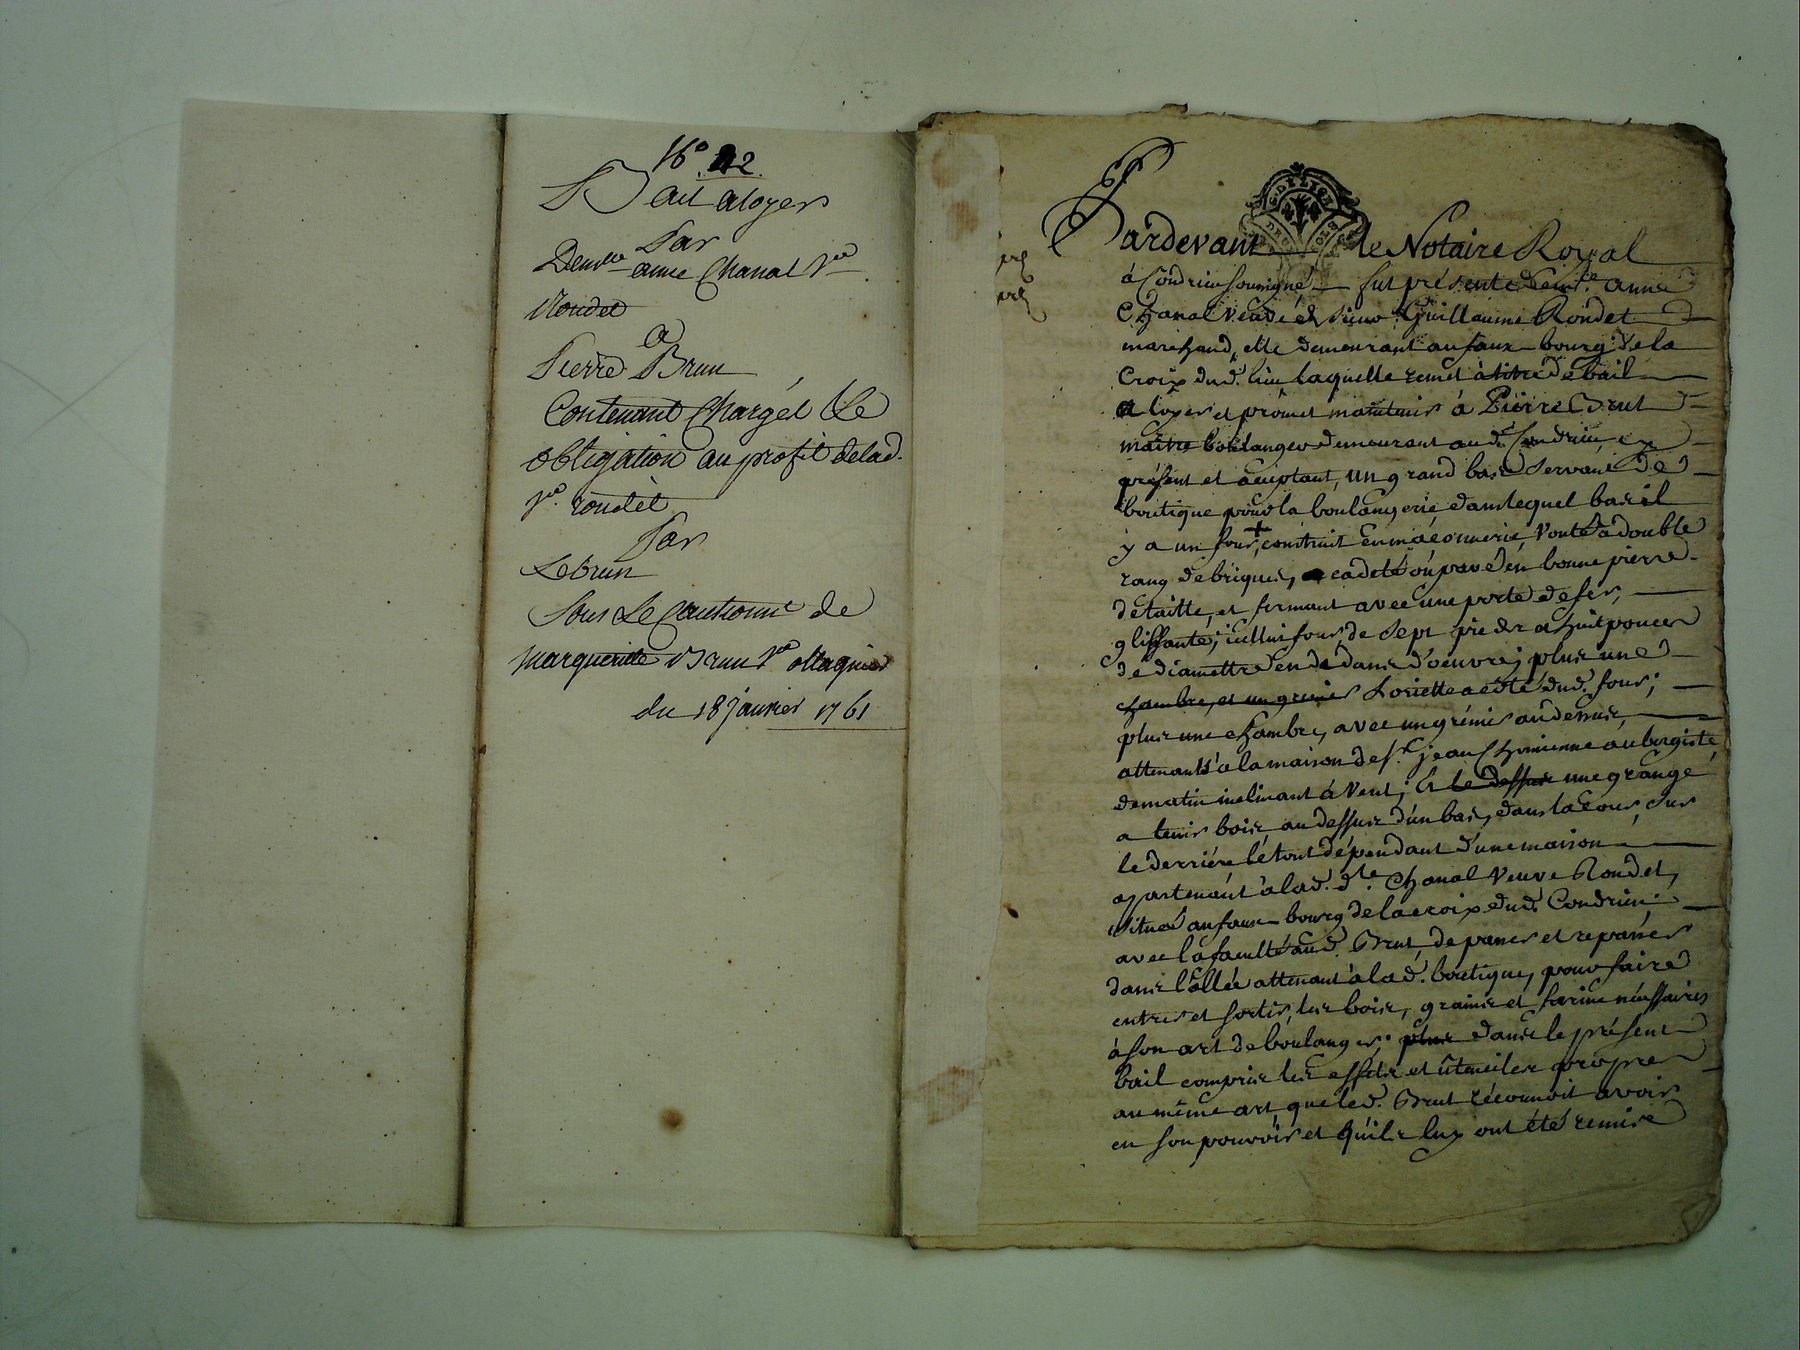 No 42
Bail a loyer
Par
Demlle anne Chanal Ve
Rondet
a
Pierre Brun
Contenant Chargés &e
obligation au profit de lad.
Ve rondet
Par
Le brun
Sous Le Cautionnt de
marguerite Brun Ve ollagnier
du 18 janvier 1761
Pardevant le Notaire Royal
à Condrieu soussigné fut présente demlle anne
Chanal veuve de sieur Guillaume Rondet
marchand, elle demeurant au faux-bourg de la
Croix dud. lieu laquelle remet à titre de bail
a loyer et promet maintenir à Pierre Brut
maître boulanger demeurant aud. Condrieu ici
présent et acceptant, un grand bas servant de
boutique pour la boulangerie dans lequel bas il
y a un four, construit en maçonnerie, Vouté a double
rang de briques, cadeté ou pavé dé bonne pierre
de taille, et fermant avec une porte de fer,
glissante; icelui four de sept pieds a huit pouces
de diamettre en dedans d'oeuvre; plus une
chambre, et un grenier a coté dud. four;
plus une chambre, avec un grénier au dessus,
attenants a la maison de sr. jean Chomienne aubergiste
de matin inclinant à Vent; Et le dessus une grange
a tenir bois, au dessus d'un bas, dans la cour, sur
le derriére le tout dépendant d'une maison
apartenant à lad. dlle. Chanal Veuve Rondet,
située au faux-bourg de la croix dud. Condrieu;
avec la faculté aud. Brut, de passer et repasser
dans l'allée attenant à lad. boutique, pour faire
entrer et sortir, les bois, grains et farine néessaires
à son art de boulanger; plus dans le présent
bail compris les effets et ûtenciles propre
au même art, que led. Brut réconnoit avoir
en son pouvoir et qu'ils luy ont été remis